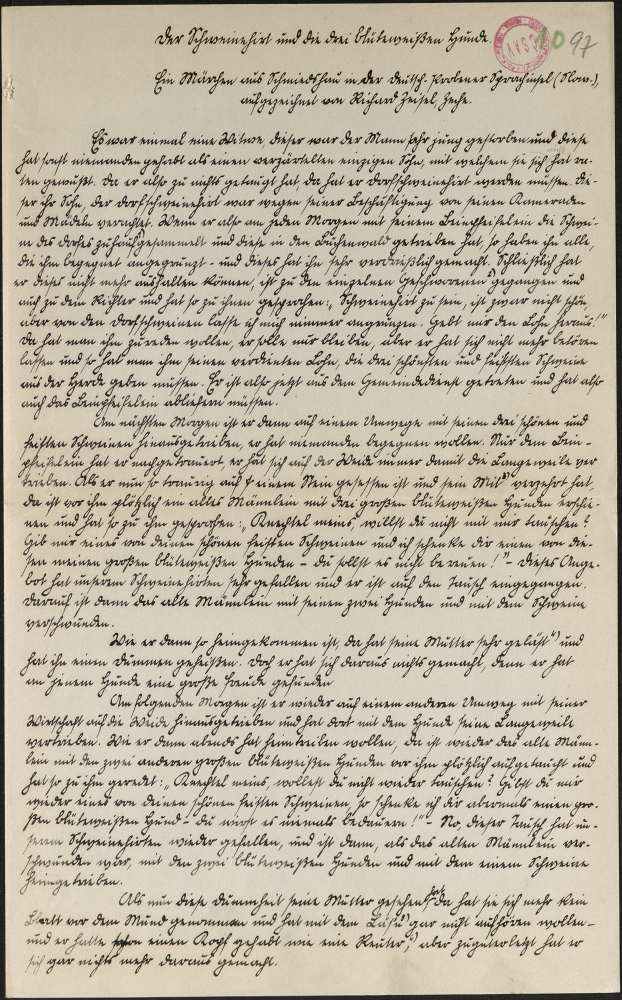 Der Schweinehirt und die drei blüteweißen Hunde.
1097
Ein Märchen aus Schmiedshau in der Deutsch-Probener Sprachinsel (Slow.),
aufgezeichnet von Richard Zeisel, Zeche.
Es war einmal eine Witwe, dieser war der Mann sehr jung gestorben und diese
hat sonst niemanden gehabt als einen verzärtelten einzigen Sohn, mit welchem sie sich hat ra-
ten gewußt. Da er also zu nichts getaugt hat, da hat er Dorfschweinehirt werden müssen. Die-
ser ihr Sohn, der Dorfschweinehirt war wegen seiner Beschäftigung von seinen Kameraden
und Mädeln verachtet. Wenn er also am jeden Morgen mit seinem Beinpfeifelein die Schwei-
ne des Dorfes zuhaufgesammelt und diese in den Buchenwald getrieben hat, so haben ihn alle,
die ihm begegnet angegrunzt - und dieses hat ihn sehr verdrießlich gemacht. Schließlich hat
er dieses nicht mehr aushalten können, ist zu den einzelnen Geschworenen gegangen und
auch zu dem Richter und hat so zu ihnen gesprochen: „Schweinehirt zu sein, ist zwar nicht schön
aber von den Dorfschweinen lasse ich mich nimmer angrunzen. Gebt mir den Lohn heraus!"
Da hat man ihm zureden wollen, er solle nur bleiben, aber er hat sich nicht mehr betören
lassen und so hat man ihm seinen verdienten Lohn, die drei schönsten und feistesten Schweine
aus der Herde geben müssen. Er ist also jetzt aus dem Gemeindedienst getreten und hat also
auch das Beinpfeifelein abliefern müssen.
Am nächsten Morgen ist er dann auf einem Umwege mit seinen drei schönen und
feisten Schweinen hinausgetrieben, er hat niemanden begegnen wollen. Nur dem Bein-
pfeifelein hat er nachgetrauert, er hat sich auf der Weide immer damit die Langeweile ver
trieben. Als er nun so traurig auf einem Stein gesessen ist und sein verzehrt hat,
da ist vor ihm plötzlich ein altes Männlein mit drei großen blüteweißen Hunden erschie-
nen und hat so zu ihm gesprochen: „Knechtel meins, willst du nicht mit mir tauschen?
Gib mir eines von deinen schönen feisten Schweinen und ich schenke dir einen von die-
sen meinen großen blüteweißen Hunden - du sollst es nicht bereuen!" - Dieses Ange-
bot hat unserem Schweinehirten sehr gefallen und er ist auf den Tausch eingegangen.
Darauf ist dann das alte Männlein mit seinen zwei Hunden und mit dem Schwein
verschwunden.
Wie er dann so heimgekommen ist, da hat seine Mutter sehr und
hat ihn einen Dummen geheißen. Doch er hat sich daraus nichts gemacht, denn er hat
an jenem Hunde eine große Freude gefunden
Am folgenden Morgen ist er wieder auf einem anderen Umweg mit seiner
Wirtschaft auf die Weide hinausgetrieben und hat dort mit dem Hunde seine Langeweile
vertrieben. Wie er dann abends hat heimtreiben wollen, da ist wieder das alte Männ-
lein mit den zwei anderen großen blüteweißen Hunden vor ihm plötzlich aufgetaucht und
hat so zu ihm geredet: „Knechtel meins, wollest du nicht wieder tauschen? Gibst du mir
wieder eines von deinen schönen feisten Schweinen, so schenke ich dir abermals einen gro-
ßen blüteweißen Hund - du wirst es niemals bedauern!" - No, dieser Tausch hat un-
serem Schweinehirten wieder gefallen, und ist dann, als das alten Männlein ver-
schwunden war, mit den zwei blüteweißen Hunden und mit dem einem Schweine
heimgetrieben.
Als nun diese Dummheit seine Mutter gesehen hat, da hat sie sich mehr kein
Blatt vor dem Mund genommen und hat mit dem gar nicht aufhören wollen -
und er hatte schon einen Kopf gehabt wie eine Reuter, aber zuguterletzt hat er
sich gar nichts mehr daraus gemacht.